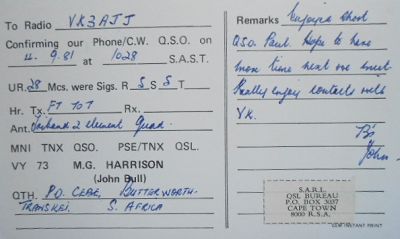 To Radio VK3AJJ
Confirming our Phone/C.W. Q.S.O. on
4.9.81 at 1028 S.A.S.T.
UR. 28 Mcs. were Sigs. R 5 S 5 T
Hr. Tx. FT 107 Rx.
Ant. 2 element Quad.
MNI TNX QSO. PSE/TNX QSL.
VY 73 M.G. HARRISON
(John Bull)
QTH. P.O. CEBE, BUTTERWORTH.
TRANSKEI. S. AFRICA
Remarks Enjoyed short
Q.S.O. Paul. Hope to have
more time next we meet
Really enjoy contacts with
VK.
John.
S.A.R.L.
QSL BUREAU
P.O. BOX 3037
CAPE TOWN
8000 R.S.A.
INSTANT PRINT